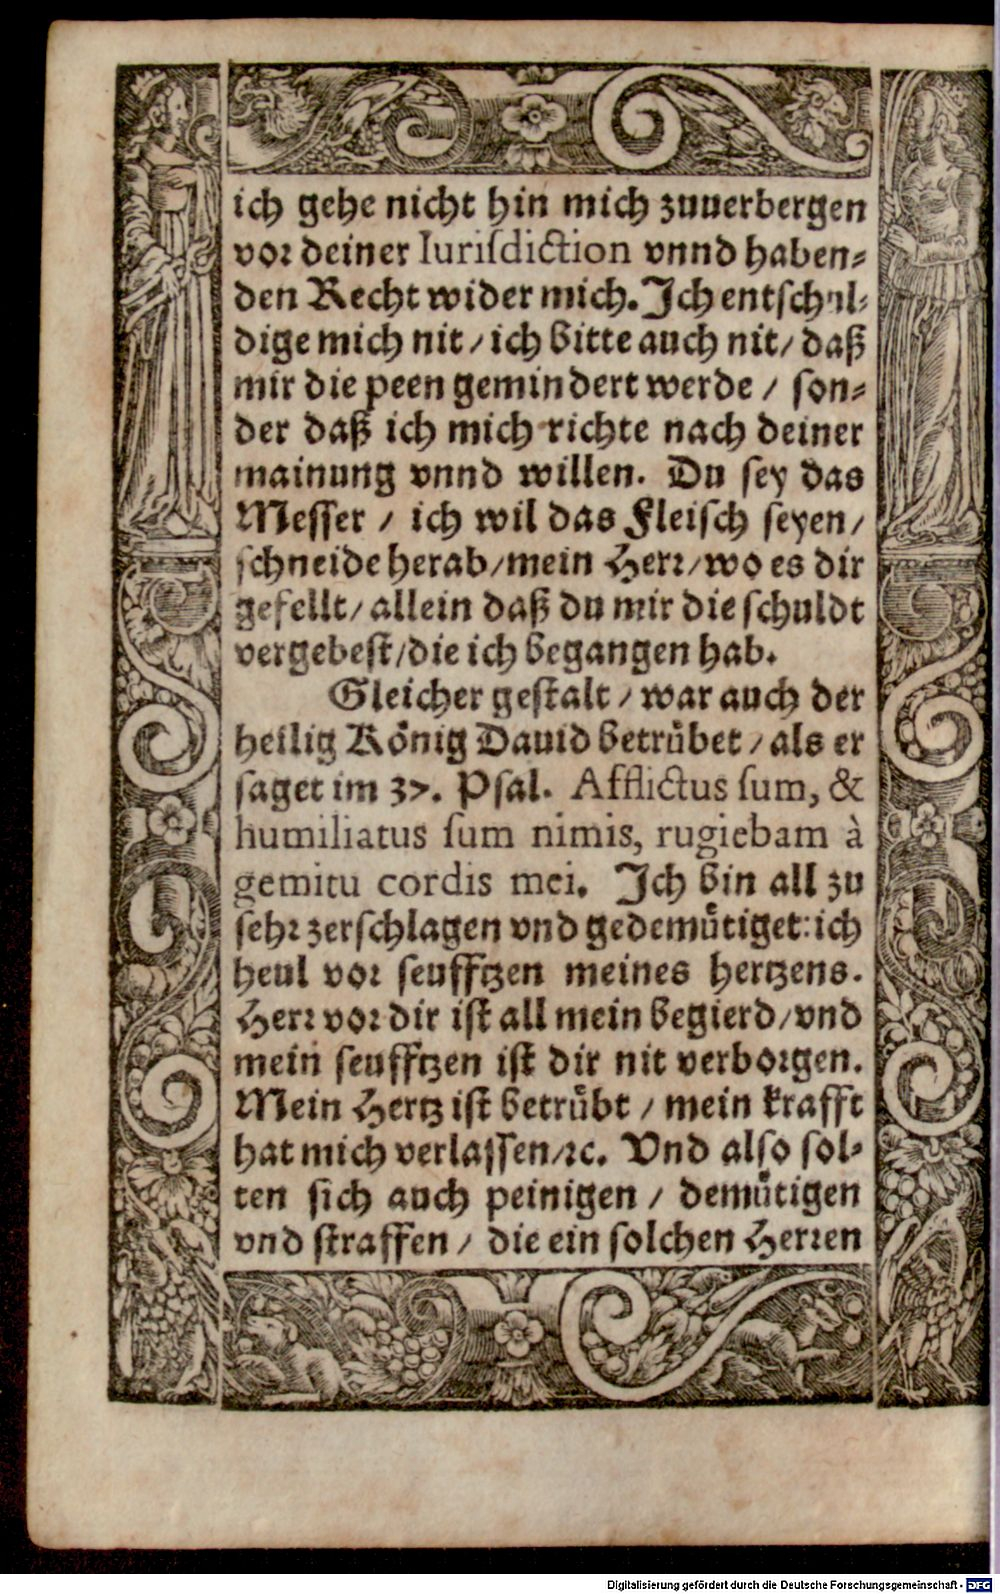 ich gehe nicht hin mich zuuerbergen
vor deiner Iurisdiction vnnd haben⸗
den Recht wider mich. Ich entschul⸗
dige mich nit / ich bitte auch nit / daß
mir die peen gemindert werde / son⸗
der daß ich mich richte nach deiner
mainung vnnd willen. Du sey das
Messer / ich wil das Fleisch seyen /
schneide herab / mein Herr / wo es dir
gefellt / allein daß du mir die schuldt
vergebest / die ich begangen hab.
Gleicher gestalt / war auch der
heilig König Dauid betrübet / als er
saget im 37. Psal. Afflictus sum, &
humiliatus sum nimis, rugiebam à
gemitu cordis mei. Ich bin all zu
sehr zerschlagen vnd gedemütiget: ich
heul vor seufftzen meines hertzens.
Herr vor dir ist all mein begierd / vnd
mein seufftzen ist dir nit verborgen.
Mein Hertz ist betrübt / mein krafft
hat mich verlassen / ꝛc. Vnd also sol⸗
ten sich auch peinigen / demütigen
vnd straffen / die ein solchen Herren
Digitalisierung gefördert durch die Deutsche Forschungsgemeinschaft - DFG